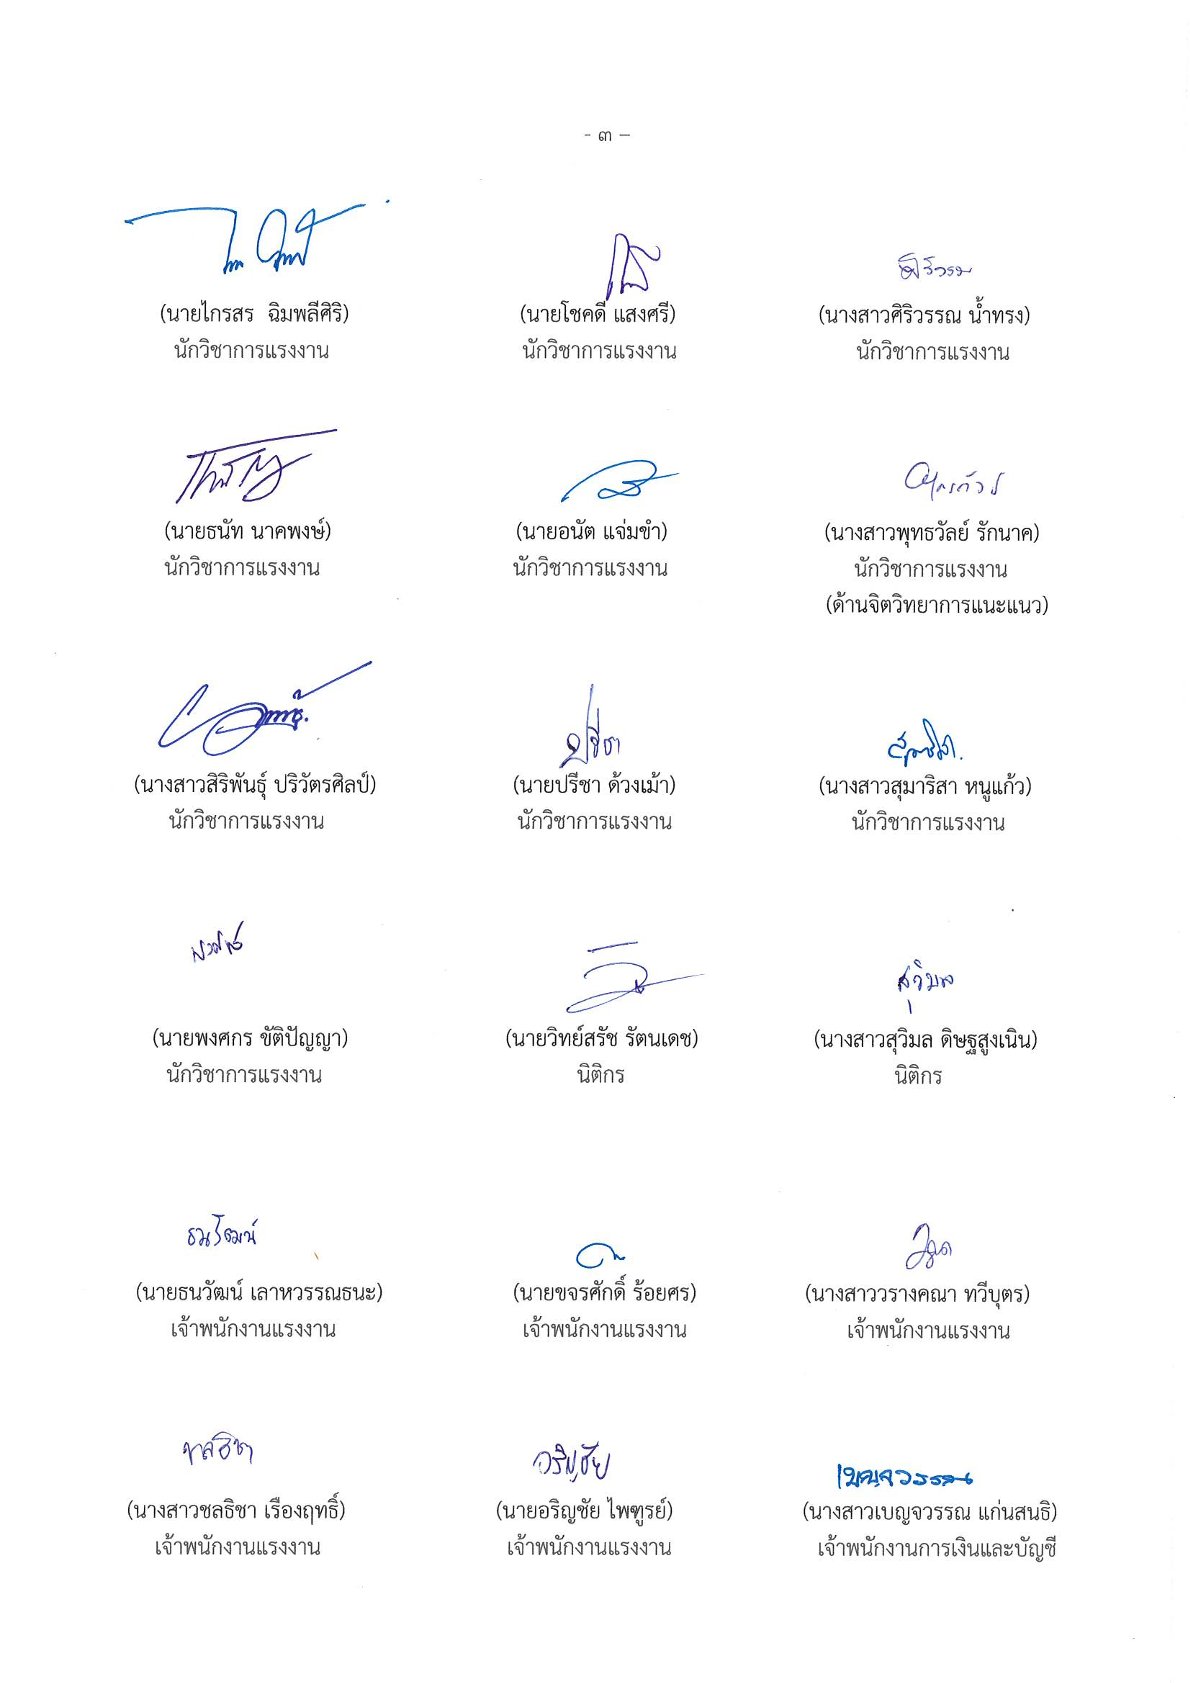 - ๓ –
(นายไกรสร ฉิมพลีศิริ) (นายโชคดี แสงศรี) (นางสาวศิริวรรณ น้ำทรง)
นักวิชาการแรงงาน นักวิชาการแรงงาน นักวิชาการแรงงาน
(นายธนัท นาคพงษ์) (นายอนัต แจ่มขำ) (นางสาวพุทธวัลย์ รักนาค)
นักวิชาการแรงงาน นักวิชาการแรงงาน นักวิชาการแรงงาน
(ด้านจิตวิทยาการแนะแนว)
ปรีชา
(นางสาวสิริพันธุ์ ปริวัตรศิลป์) (นายปรีชา ด้วงเม้า) (นางสาวสุมาริสา หนูแก้ว)
นักวิชาการแรงงาน นักวิชาการแรงงาน นักวิชาการแรงงาน
สุวิมล
(นายพงศกร ขัติปัญญา) (นายวิทย์สรัช รัตนเดช) (นางสาวสุวิมล ดิษฐสูงเนิน)
นักวิชาการแรงงาน นิติกร นิติกร
ธนวัฒน์
(นายธนวัฒน์ เลาหวรรณธนะ) (นายขจรศักดิ์ ร้อยศร) (นางสาววรางคณา ทวีบุตร)
เจ้าพนักงานแรงงาน เจ้าพนักงานแรงงาน เจ้าพนักงานแรงงาน
ชลธิชา อริญชัย เบญจวรรณ
(นางสาวชลธิชา เรืองฤทธิ์) (นายอริญชัย ไพฑูรย์) (นางสาวเบญจวรรณ แก่นสนธิ)
เจ้าพนักงานแรงงาน เจ้าพนักงานแรงงาน เจ้าพนักงานการเงินและบัญชี